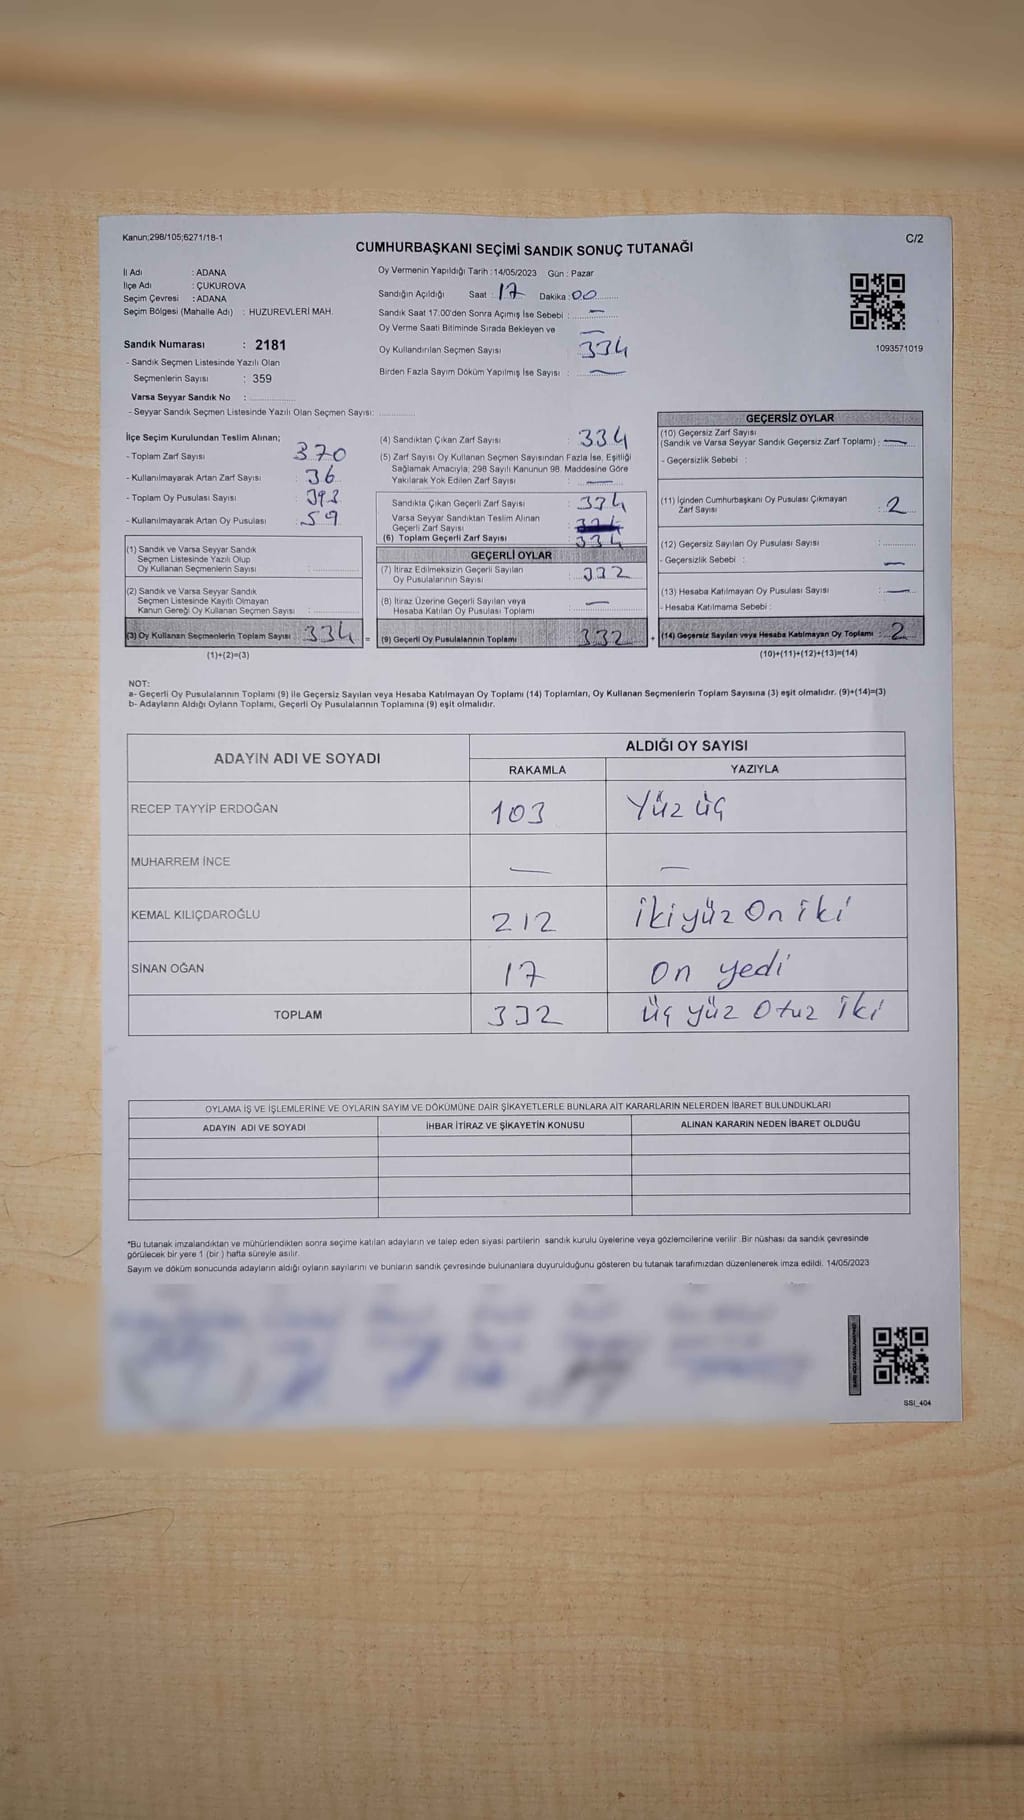 Kanun;298/105;6271/18-1
C/2
CUMHURBAŞKANI SEÇİMİ SANDIK SONUÇ TUTANAĞI
İl Adı : ADANA
İlçe Adı : ÇUKUROVA
Seçim Çevresi : ADANA
Seçim Bölgesi (Mahalle Adı) : HUZUREVLERİ MAH.
Sandık Numarası : 2181
- Sandık Seçmen Listesinde Yazılı Olan
Seçmenlerin Sayısı : 359
Varsa Seyyar Sandık No :
- Seyyar Sandık Seçmen Listesinde Yazılı Olan Seçmen Sayısı:
Oy Vermenin Yapıldığı Tarih : 14/05/2023 Gün : Pazar
Sandığın Açıldığı Saat : 17 Dakika : 00
Sandık Saat 17.00'den Sonra Açımış İse Sebebi : —
Oy Verme Saati Bitiminde Sırada Bekleyen ve —
Oy Kullandırılan Seçmen Sayısı 334
Birden Fazla Sayım Döküm Yapılmış İse Sayısı : —
1093571019
İlçe Seçim Kurulundan Teslim Alınan;
- Toplam Zarf Sayısı : 370
- Kullanılmayarak Artan Zarf Sayısı : 36
- Toplam Oy Pusulası Sayısı : 393
- Kullanılmayarak Artan Oy Pusulası : 59
(1) Sandık ve Varsa Seyyar Sandık
Seçmen Listesinde Yazılı Olup
Oy Kullanan Seçmenlerin Sayısı :
(2) Sandık ve Varsa Seyyar Sandık
Seçmen Listesinde Kayıtlı Olmayan
Kanun Gereği Oy Kullanan Seçmen Sayısı :
(3) Oy Kullanan Seçmenlerin Toplam Sayısı : 334
(1)+(2)=(3)
(4) Sandıktan Çıkan Zarf Sayısı : 334
(5) Zarf Sayısı Oy Kullanan Seçmen Sayısından Fazla İse, Eşitliği
Sağlamak Amacıyla; 298 Sayılı Kanunun 98. Maddesine Göre
Yakılarak Yok Edilen Zarf Sayısı : —
Sandıkta Çıkan Geçerli Zarf Sayısı : 334
Varsa Seyyar Sandıktan Teslim Alınan
Geçerli Zarf Sayısı
(6) Toplam Geçerli Zarf Sayısı : 334
GEÇERLİ OYLAR
(7) İtiraz Edilmeksizin Geçerli Sayılan
Oy Pusulalarının Sayısı : 332
(8) İtiraz Üzerine Geçerli Sayılan veya
Hesaba Katılan Oy Pusulası Toplamı : —
= (9) Geçerli Oy Pusulalarının Toplamı : 332
GEÇERSİZ OYLAR
(10) Geçersiz Zarf Sayısı
(Sandık ve Varsa Seyyar Sandık Geçersiz Zarf Toplamı) : —
- Geçersizlik Sebebi :
(11) İçinden Cumhurbaşkanı Oy Pusulası Çıkmayan
Zarf Sayısı : 2
(12) Geçersiz Sayılan Oy Pusulası Sayısı :
- Geçersizlik Sebebi : —
(13) Hesaba Katılmayan Oy Pusulası Sayısı : —
- Hesaba Katılmama Sebebi :
+ (14) Geçersiz Sayılan veya Hesaba Katılmayan Oy Toplamı : 2
(10)+(11)+(12)+(13)=(14)
NOT:
a- Geçerli Oy Pusulalarının Toplamı (9) ile Geçersiz Sayılan veya Hesaba Katılmayan Oy Toplamı (14) Toplamları, Oy Kullanan Seçmenlerin Toplam Sayısına (3) eşit olmalıdır. (9)+(14)=(3)
b- Adayların Aldığı Oyların Toplamı, Geçerli Oy Pusulalarının Toplamına (9) eşit olmalıdır.
ADAYIN ADI VE SOYADI
ALDIĞI OY SAYISI
RAKAMLA YAZIYLA
RECEP TAYYİP ERDOĞAN 103 Yüz üç
MUHARREM İNCE — —
KEMAL KILIÇDAROĞLU 212 İkiyüz On iki
SİNAN OĞAN 17 On yedi
TOPLAM 332 üç yüz Otuz İki
OYLAMA İŞ VE İŞLEMLERİNE VE OYLARIN SAYIM VE DÖKÜMÜNE DAİR ŞİKAYETLERLE BUNLARA AİT KARARLARIN NELERDEN İBARET BULUNDUKLARI
ADAYIN ADI VE SOYADI İHBAR İTİRAZ VE ŞİKAYETİN KONUSU ALINAN KARARIN NEDEN İBARET OLDUĞU
*Bu tutanak imzalandıktan ve mühürlendikten sonra seçime katılan adayların ve talep eden siyasi partilerin sandık kurulu üyelerine veya gözlemcilerine verilir. Bir nüshası da sandık çevresinde
görülecek bir yere 1 (bir ) hafta süreyle asılır.
Sayım ve döküm sonucunda adayların aldığı oyların sayılarını ve bunların sandık çevresinde bulunanlara duyurulduğunu gösteren bu tutanak tarafımızdan düzenlenerek imza edildi. 14/05/2023
SSI_404